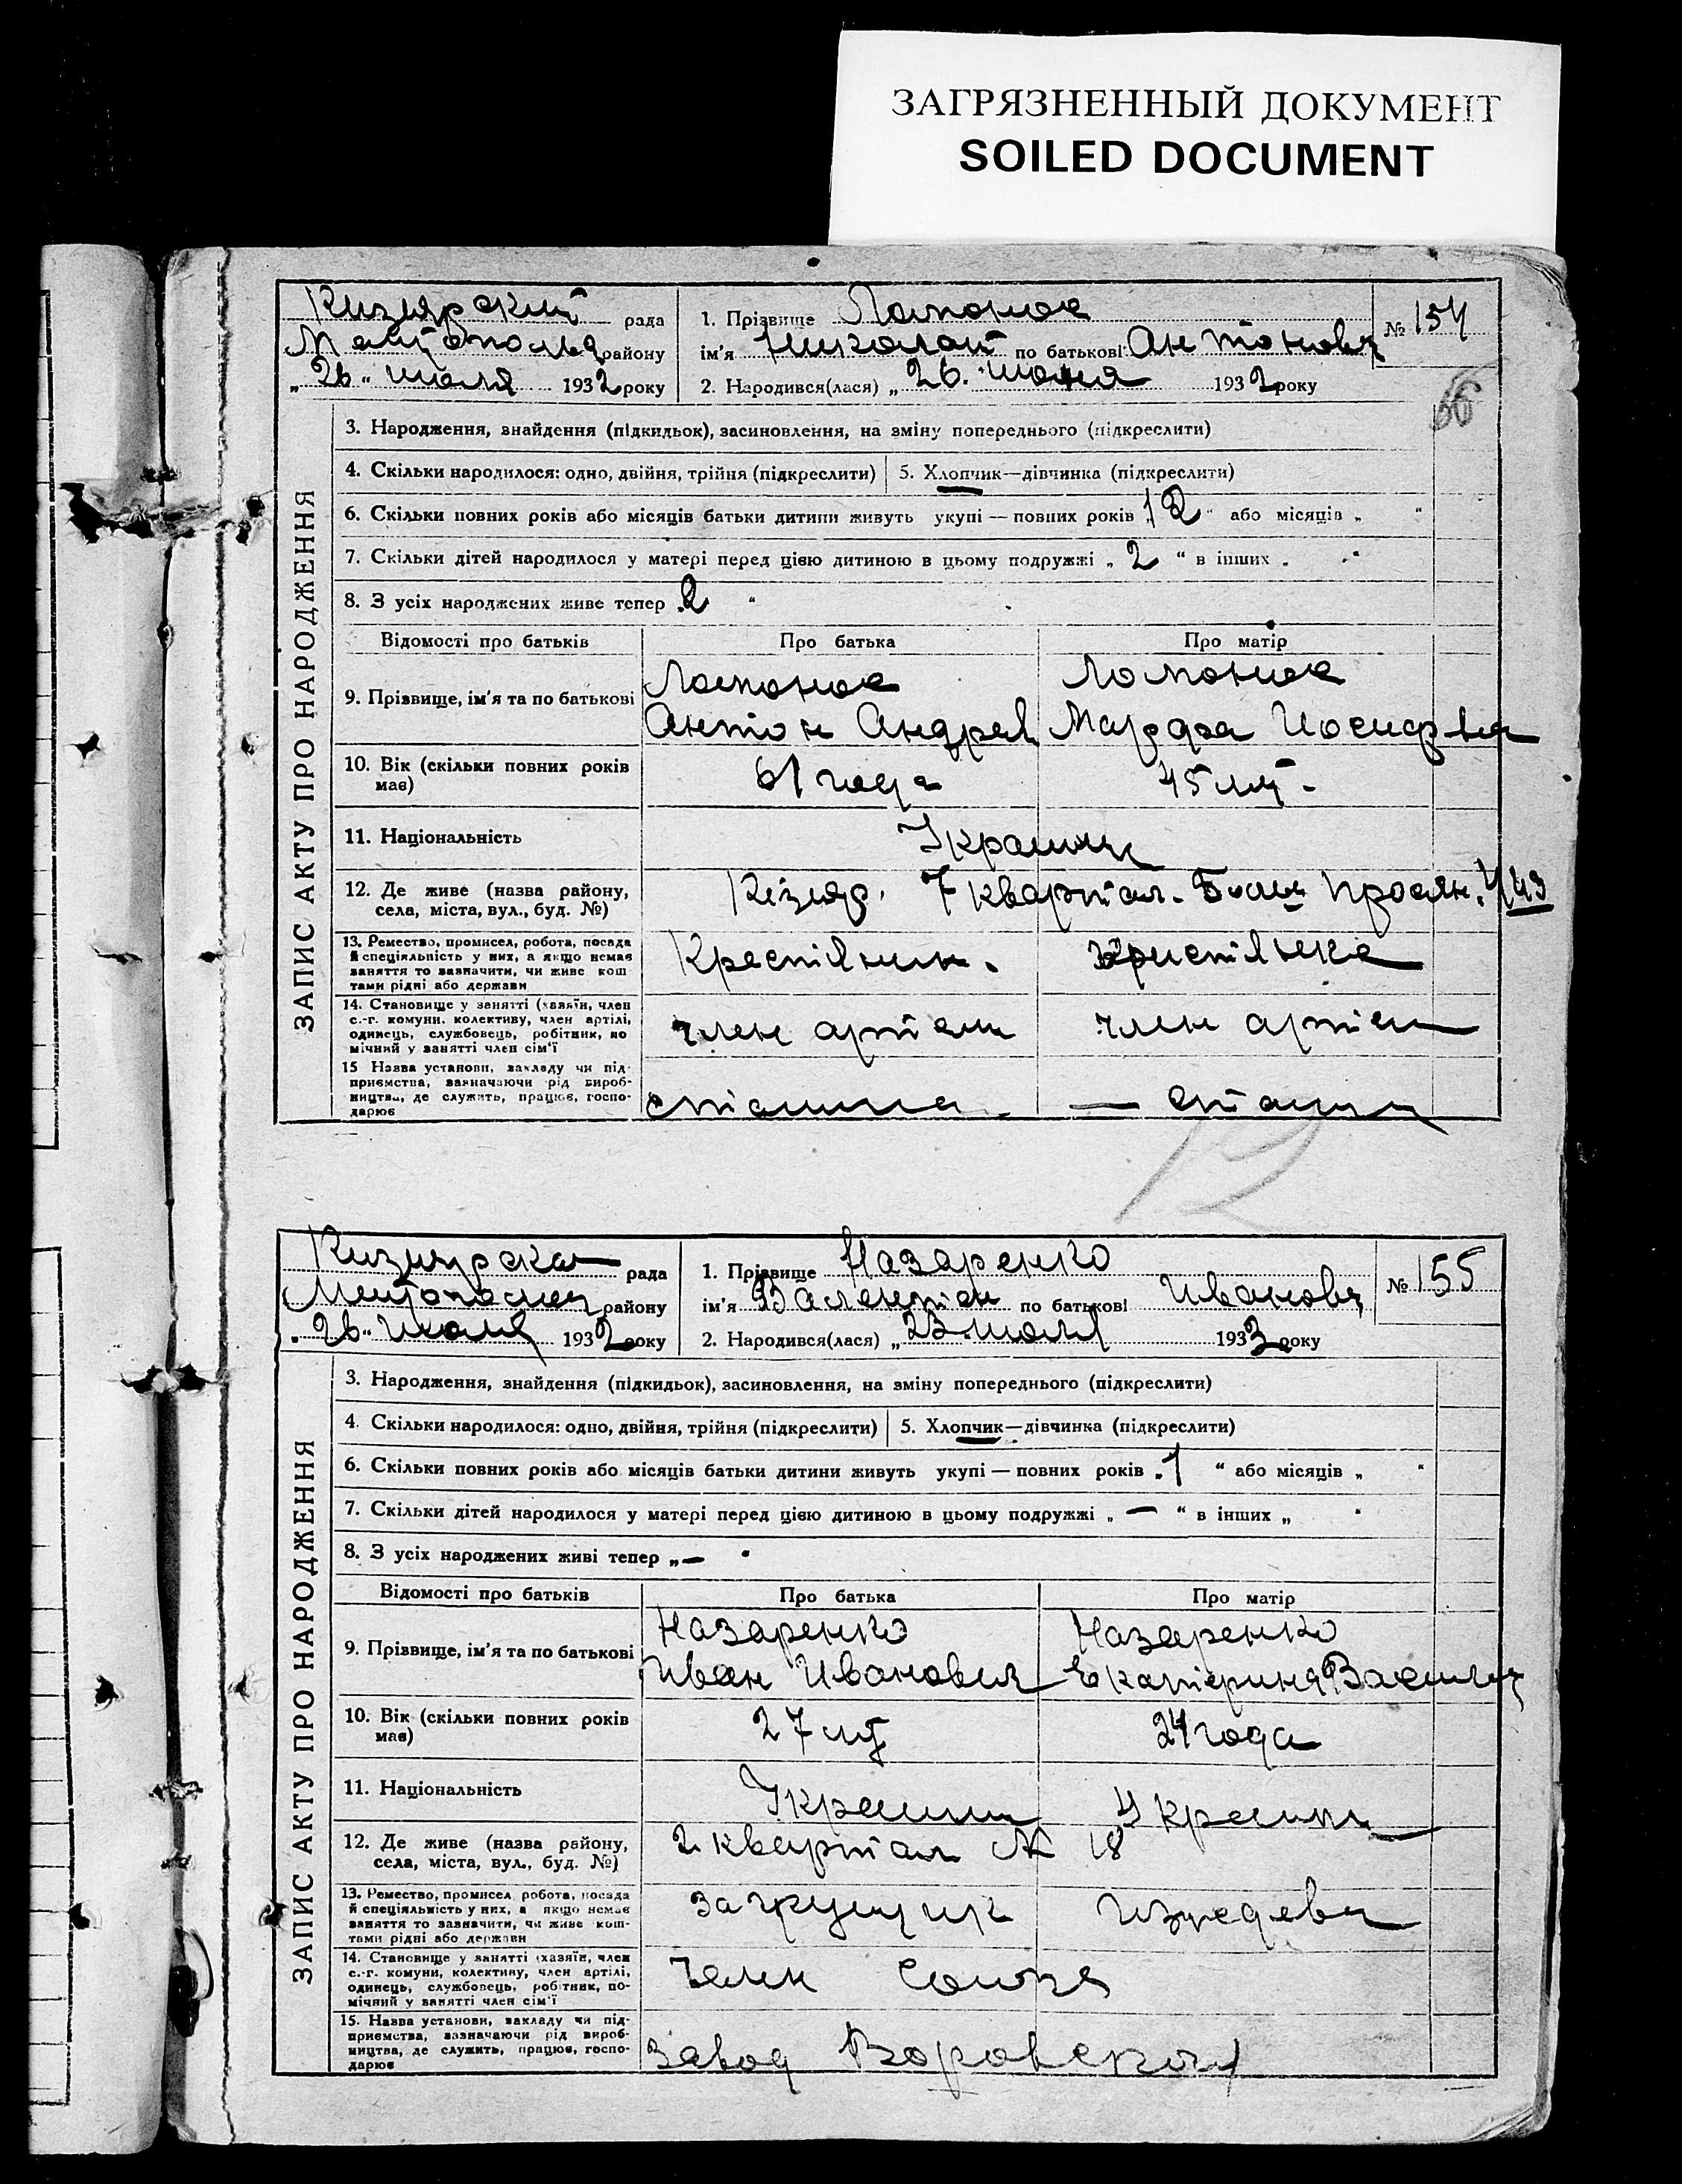 ЗАГРЯЗНЕННЫЙ ДОКУМЕНТ
SOILED DOCUMENT
рада
району
„26“ июля 1932 року
1. Прізвище
ім'я Николай по батькові Антонови
2. Народився(лася) „26. июня 1932 року
№ 154
66
ЗАПИС АКТУ ПРО НАРОДЖЕННЯ
3. Народження, знайдення (підкидьок), засиновлення, на зміну попереднього (підкреслити)
4. Скільки народилося: одно, двійня, трійня (підкреслити)
5. Хлопчик—дівчинка (підкреслити)
6. Скільки повних років або місяців батьки дитини живуть укупі — повних років „12“ або місяців „ “
7. Скільки дітей народилося у матері перед цією дитиною в цьому подружжі „2“ в інших „ “
8. З усіх народжених живе тепер „2“
Відомості про батьків
Про батька
Про матір
9. Прізвище, ім'я та по батькові
Антон Андрев
Марфа Иосифвна
10. Вік (скільки повних років має)
61 года
45 лет
11. Національність
Украинцы
12. Де живе (назва району, села, міста, вул., буд. №)
Кізияр. 7 квартал.
13. Ремество, промисел, робота, посада
й спеціяльність у них, а якщо немає
заняття то зазначити, чи живе кош
тами рідні або держави
14. Становище у занятті (хазяїн, член
с.-г. комуни, колективу, член артілі,
одинець, службовець, робітник, по
мічний у занятті член сім'ї
член артели
член артели
15 Назва установи, закладу чи під-
приємства, зазначаючи рід вироб-
ництва, де служить, працює, госпо-
дарює
12
Кизиярска рада
району
„26“ июля 1932 року
1. Прізвище Назаренко
ім'я Валентин по батькові Иванови
2. Народився(лася) „23 июля 1933 року
№ 155
ЗАПИС АКТУ ПРО НАРОДЖЕННЯ
3. Народження, знайдення (підкидьок), засиновлення, на зміну попереднього (підкреслити)
4. Скільки народилося: одно, двійня, трійня (підкреслити)
5. Хлопчик—дівчинка (підкреслити)
6. Скільки повних років або місяців батьки дитини живуть укупі — повних років „1“ або місяців „ “
7. Скільки дітей народилося у матері перед цією дитиною в цьому подружжі „—“ в інших „ “
8. З усіх народжених живі тепер „—“
Відомості про батьків
Про батька
Про матір
9. Прізвище, ім'я та по батькові
Назаренко
Иван Иванович
Назаренко
Екатерина
10. Вік (скільки повних років має)
27 лет
24 года
11. Національність
12. Де живе (назва району, села, міста, вул., буд. №)
2 квартал № 18
13. Ремество, промисел, робота, посада
й спеціяльність у них, а якщо немає
заняття то зазначити, чи живе кош-
тами рідні або держави
14. Становище у занятті (хазяїн, член
с.-г. комуни, колективу, член артілі,
одинець, службовець, робітник, по-
мічний у занятті член сім'ї
член союза
15. Назва установи, закладу чи під-
приємства, зазначаючи рід вироб-
ництва, де служить, працює, госпо-
дарює
Завод Воровского